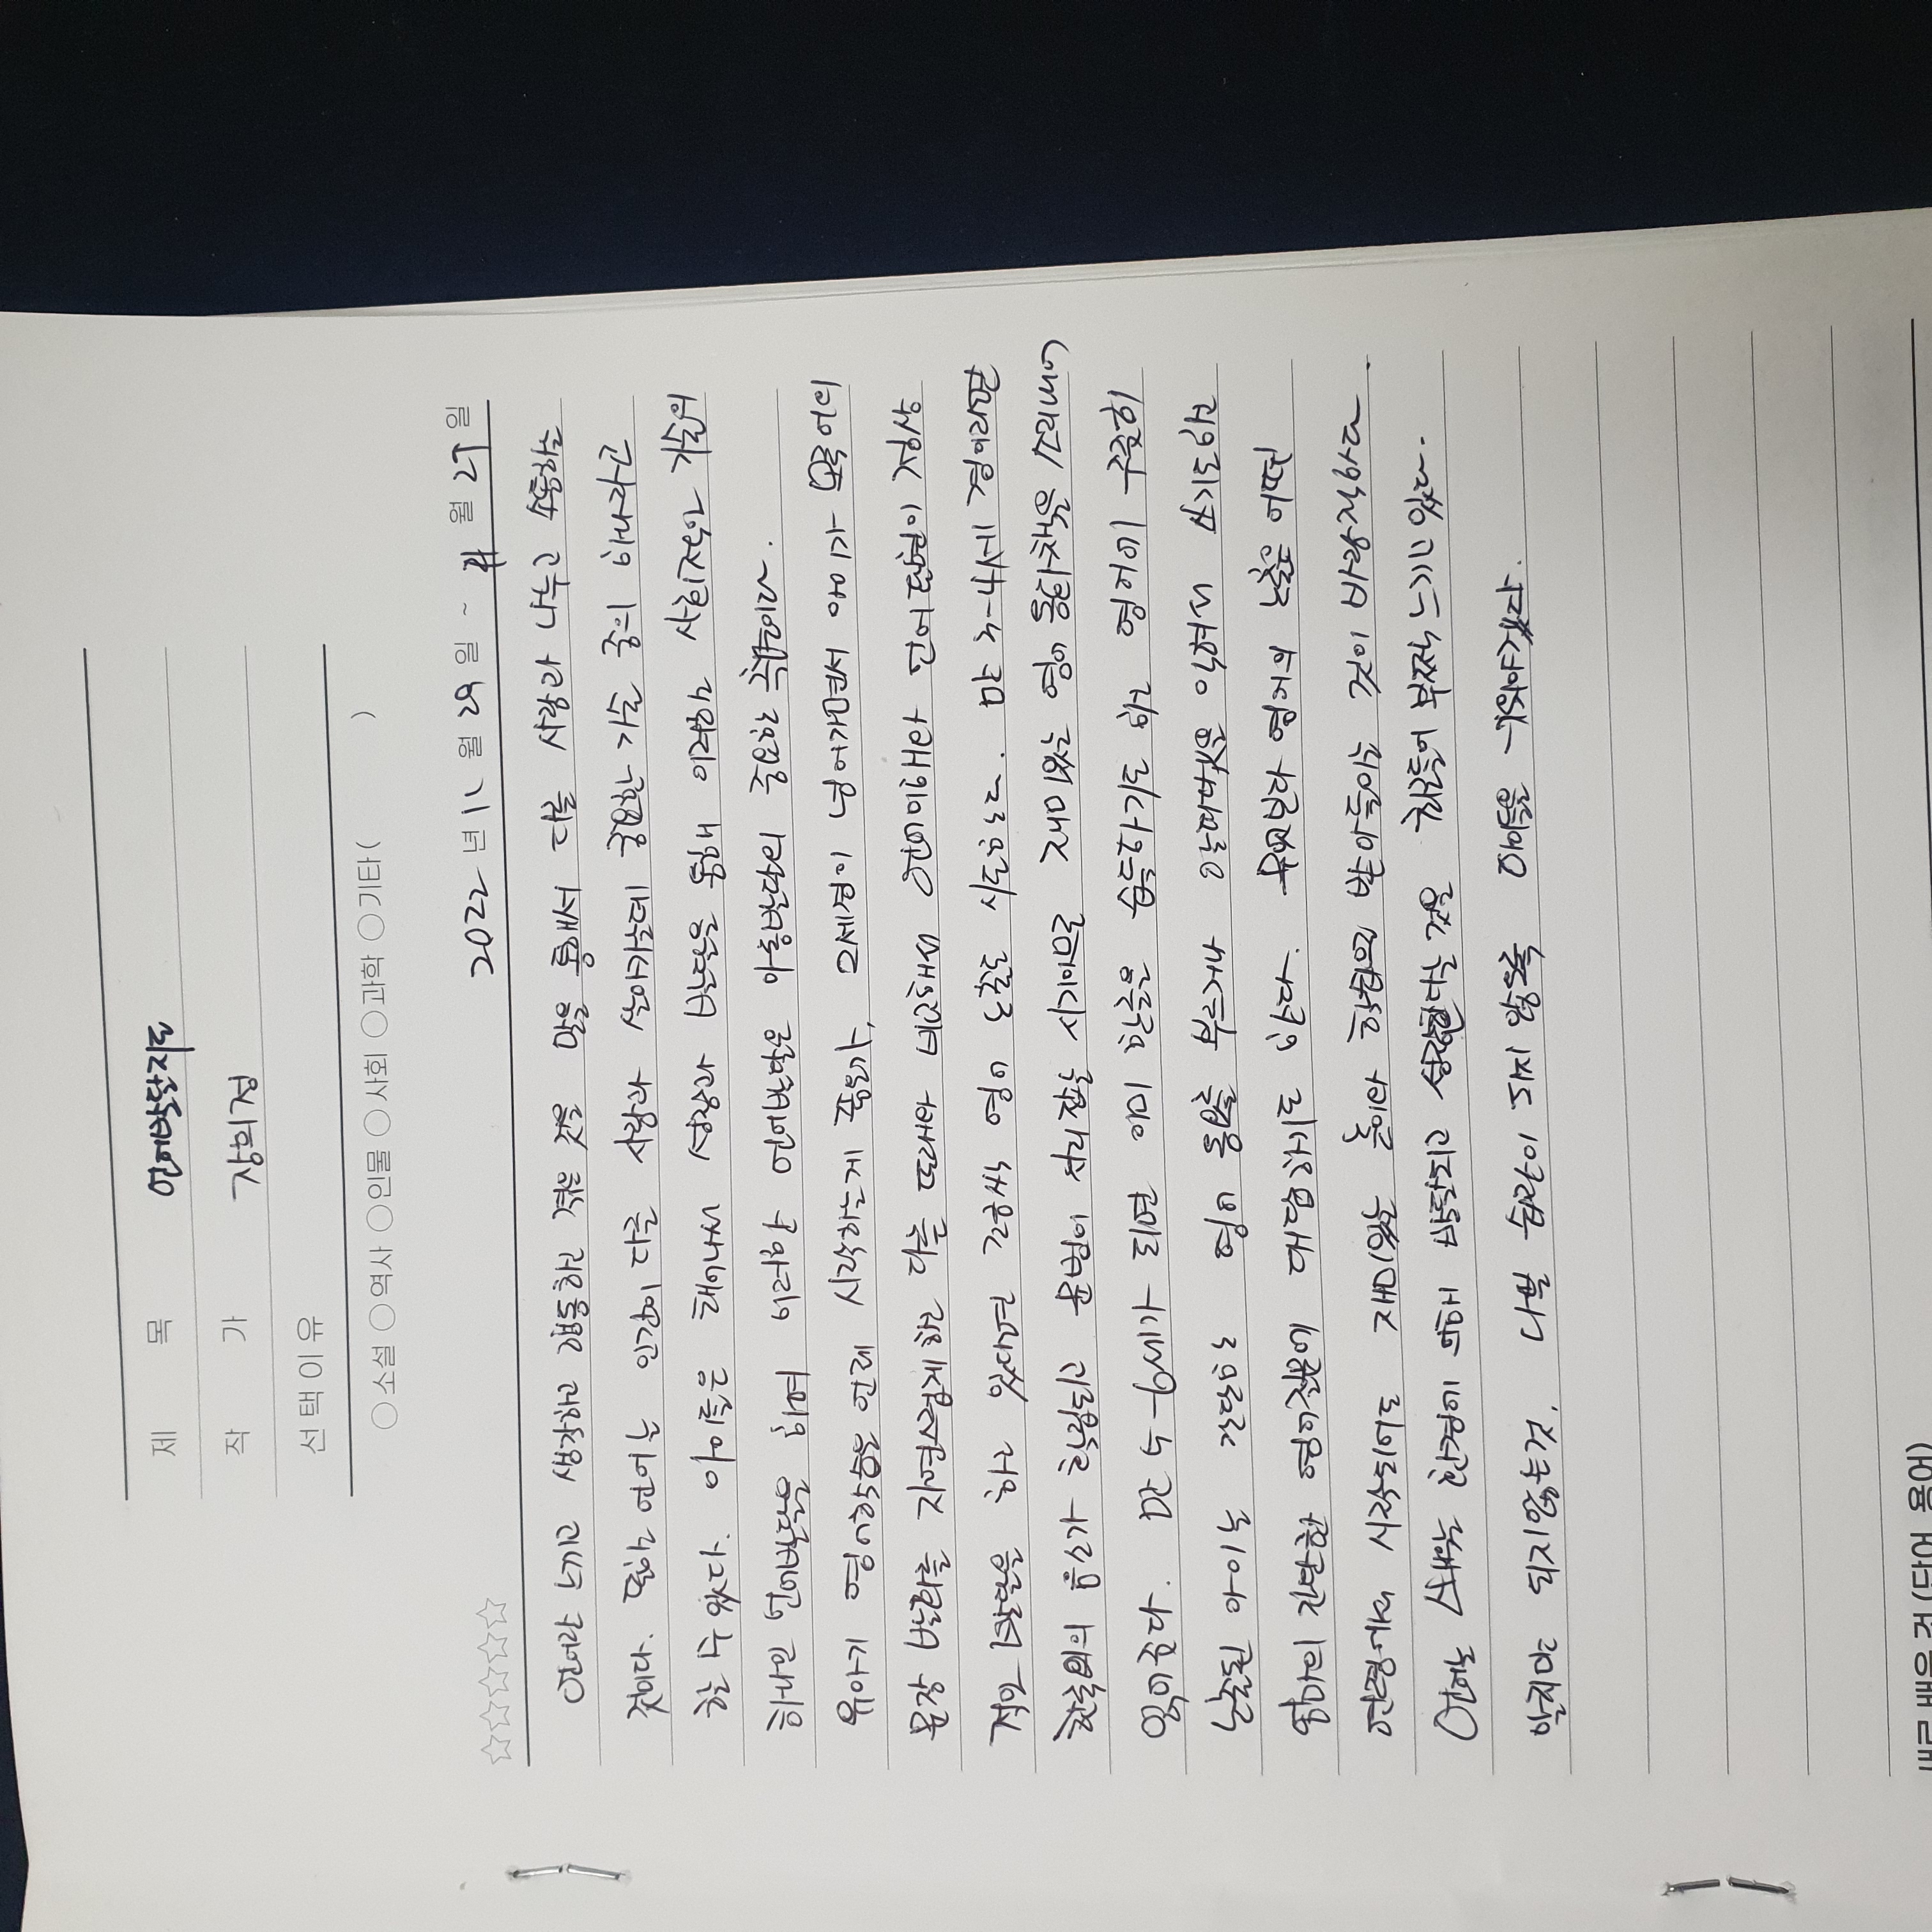 제 목 언어발달지도
작 가 장희정
선택이유
○소설 ○역사 ○인물 ○사회 ○과학 ○기타( )
☆☆☆☆☆ 2022 년 11 월 29 일 ~ 월 29 일
언어란 느끼고 생각하고 행동하고 겪은 것을 말을 통해서 다른 사람과 나누고 소통하는
것이다. 또한 언어는 인간이 다른 사람과 살아가는데 중요한 기술 중의 하나라고
할 수 있다. 아이들은 태어나서 성장과 발달을 통해 이러한 사회적인 기술의
하나인 언어발달을 하며 이러한 언어발달은 아동발달의 중요한 측면이다.
유아기 영어학습은 언제 시작하는게 좋은가, 2세경이 넘어가면서 아이가 모국어의
문장 발화를 자연스럽게 하고 다른 또래와 비교해서 언어이해와 언어 표현이 정상
적인 발달을 하고 있다면 조금씩 영어 노출도 시도한다. 만 3-4세 경이라면
한국어의 음소가 확립되고 문법이 자리 잡는 시기이므로 재미있는 영어 동화책을 소리내어
읽어준다. 만 5-6세가 되면 이미 한글을 습득하기도 하고 영어에 꾸준히
노출된 아이는 간단한 영어 동요를 부르거나 알파벳을 익혀서 쓰기도하고
엄마의 간단한 영어질문에 대답하기도 한다. 무엇보다 영어의 노출은 어떤
연령에서 시작되어도 재미있는 놀이와 학습으로 받아들이는 것이 바람직하다.
언어는 환경에 의해 발달되고 성장한다는 것을 최근들어 부쩍 느끼고 있다.
알지만 되지않는것. 나쁜 습관이 되지 않도록 아이들을 키워야겠다.
새로 배운 것 (단어, 용어)